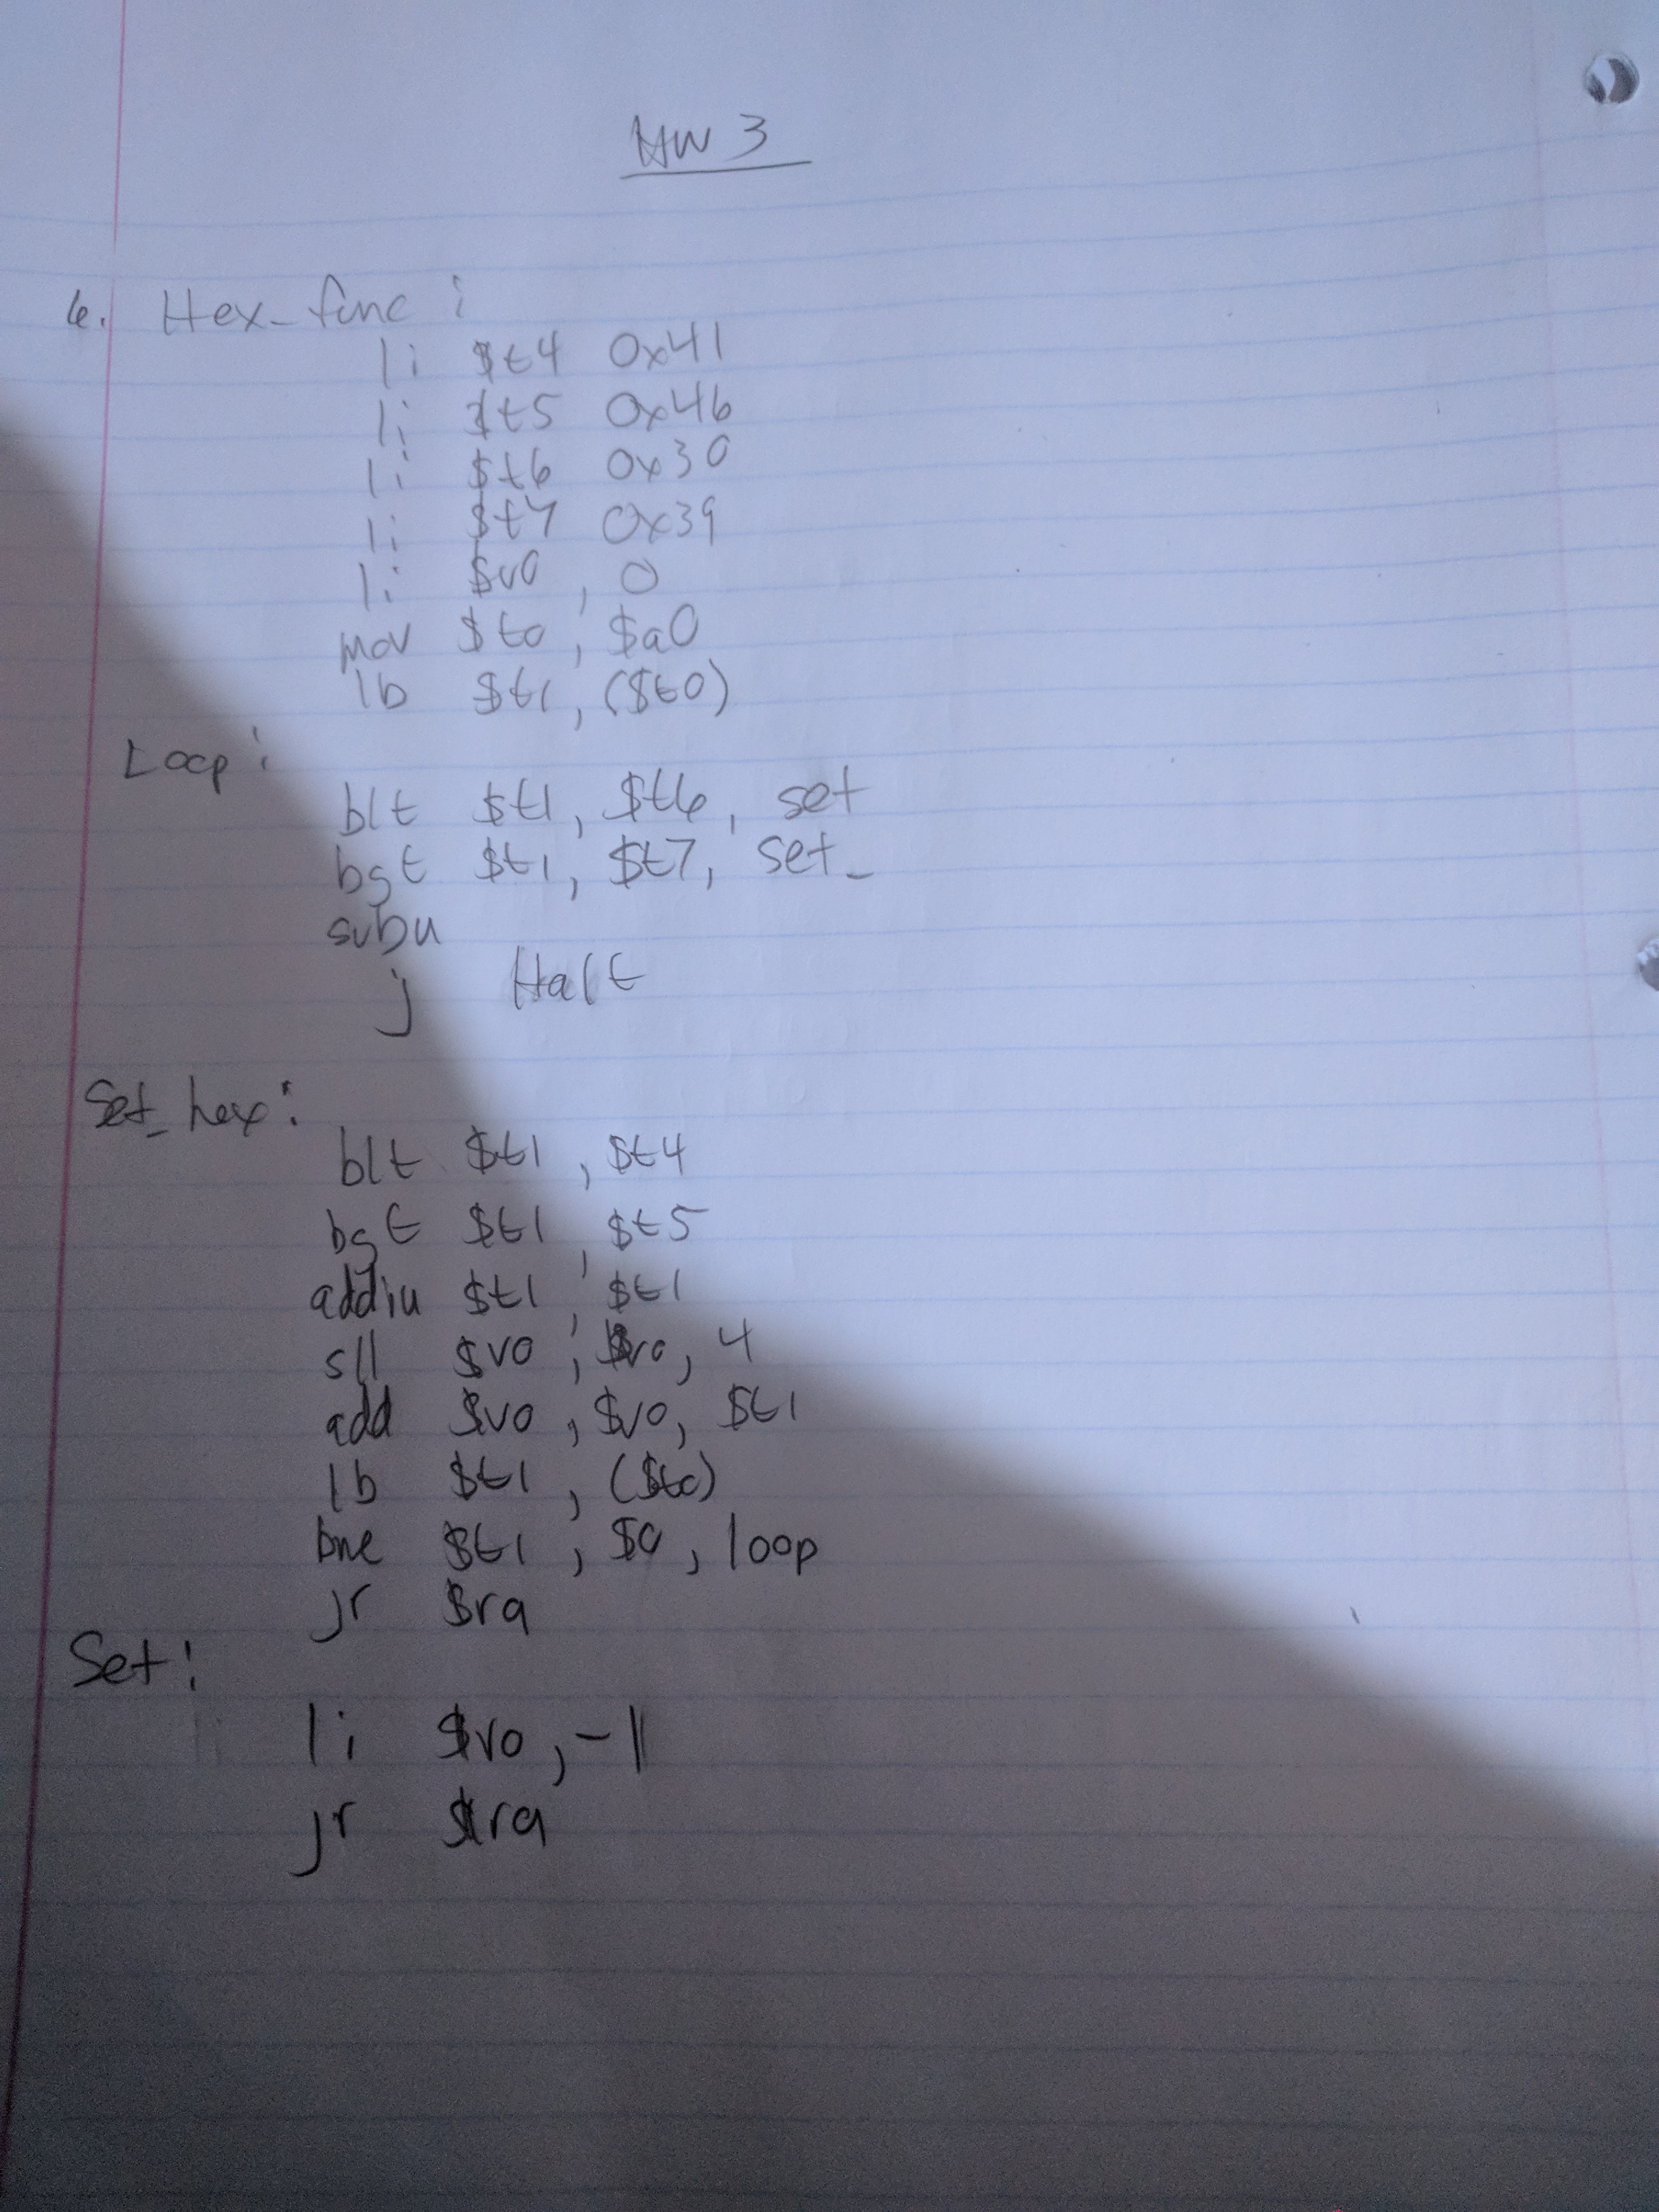 HW 3
6. Hex_func :
li $t4 0x41
li $t5 0x46
li $t6 0x30
li $t7 0x39
li $v0 , 0
mov $t0 , $a0
lb $t1 , ($t0)
Loop :
blt $t1 , $t6 , set
bgt $t1 , $t7 , set_
subu
j Halt
Set_hex :
blt $t1 , $t4
bgt $t1 , $t5
addiu $t1 , $t1
sll $v0 , $v0 , 4
add $v0 , $v0 , $t1
lb $t1 , ($t0)
bne $t1 , $0 , loop
jr $ra
Set :
li $v0 , -1
jr $ra